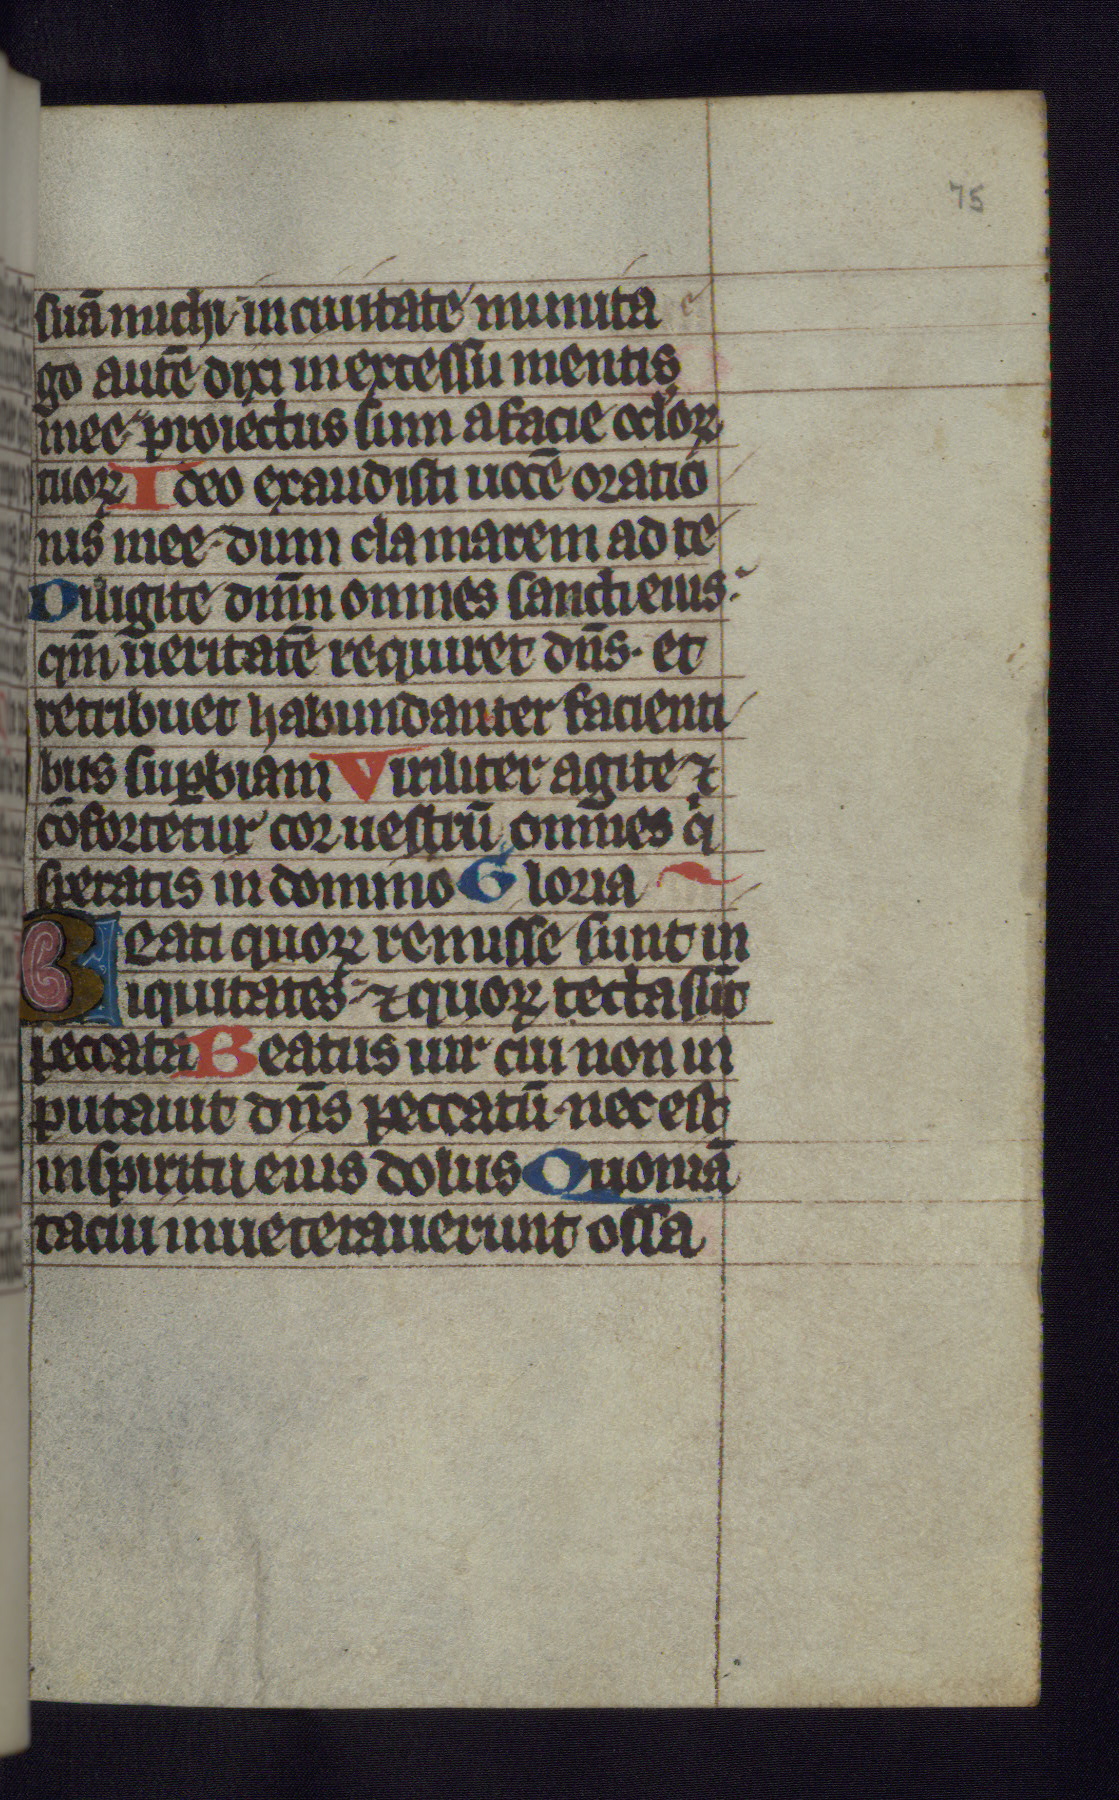 75
suā michi in ciuitate munita
go autē dixi in excessu mentis
mee proiectus sum a facie oclorꝝ
tuorꝝ Ideo exaudisti uocē oratio
nis mee dum clamarem ad te
Diligite dnm̄ omnes sancti eius
qm̄ ueritatē requiret dn̄s · et
retribuet habundanter facienti
bus suꝑbiam Viriliter agite ⁊
cōfortetur cor uestrū omnes qⁱ
speratis in domino Gloria
Beati quorꝝ remisse sunt in
iquitates ⁊ quorꝝ tecta sūt
peccata Beatus uir cui non in
putauit dn̄s peccatū · nec est
in spiritu eius dolus Quoniā
tacui inueterauerunt ossa